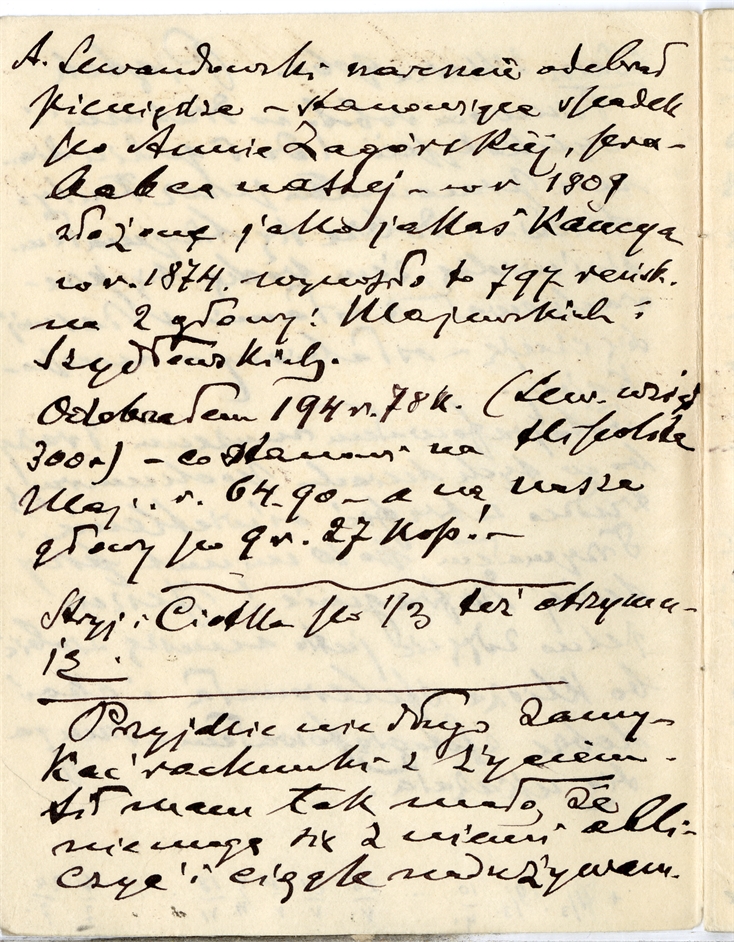 A. Lewandowski nareszcie odebrał
pieniądze – stanowiące spadek
po Annie Zagórskiej, pra-
babce naszej – w r. 1809
złożone jako jakaś Kaucya
w r. 1874. wynosiło to 797 reńsk.
na 2 głowy: Majewskich i
Szydłowskich.
Odebrałem 194 r. 78 k. (Lew. wziął
300 r) – co stanowi na
Maj.: r. 64.90 – a na nasze
głowy po 9 r. 27 kop! –
Stryj i Ciotka po 1/3 też otrzyma-
ją.
Przyjdzie nie długo zamy-
kać rachunki z życiem.
sił mam tak mało, że
nie mogę się z niemi obli-
czyć i ciągle nadużywam.